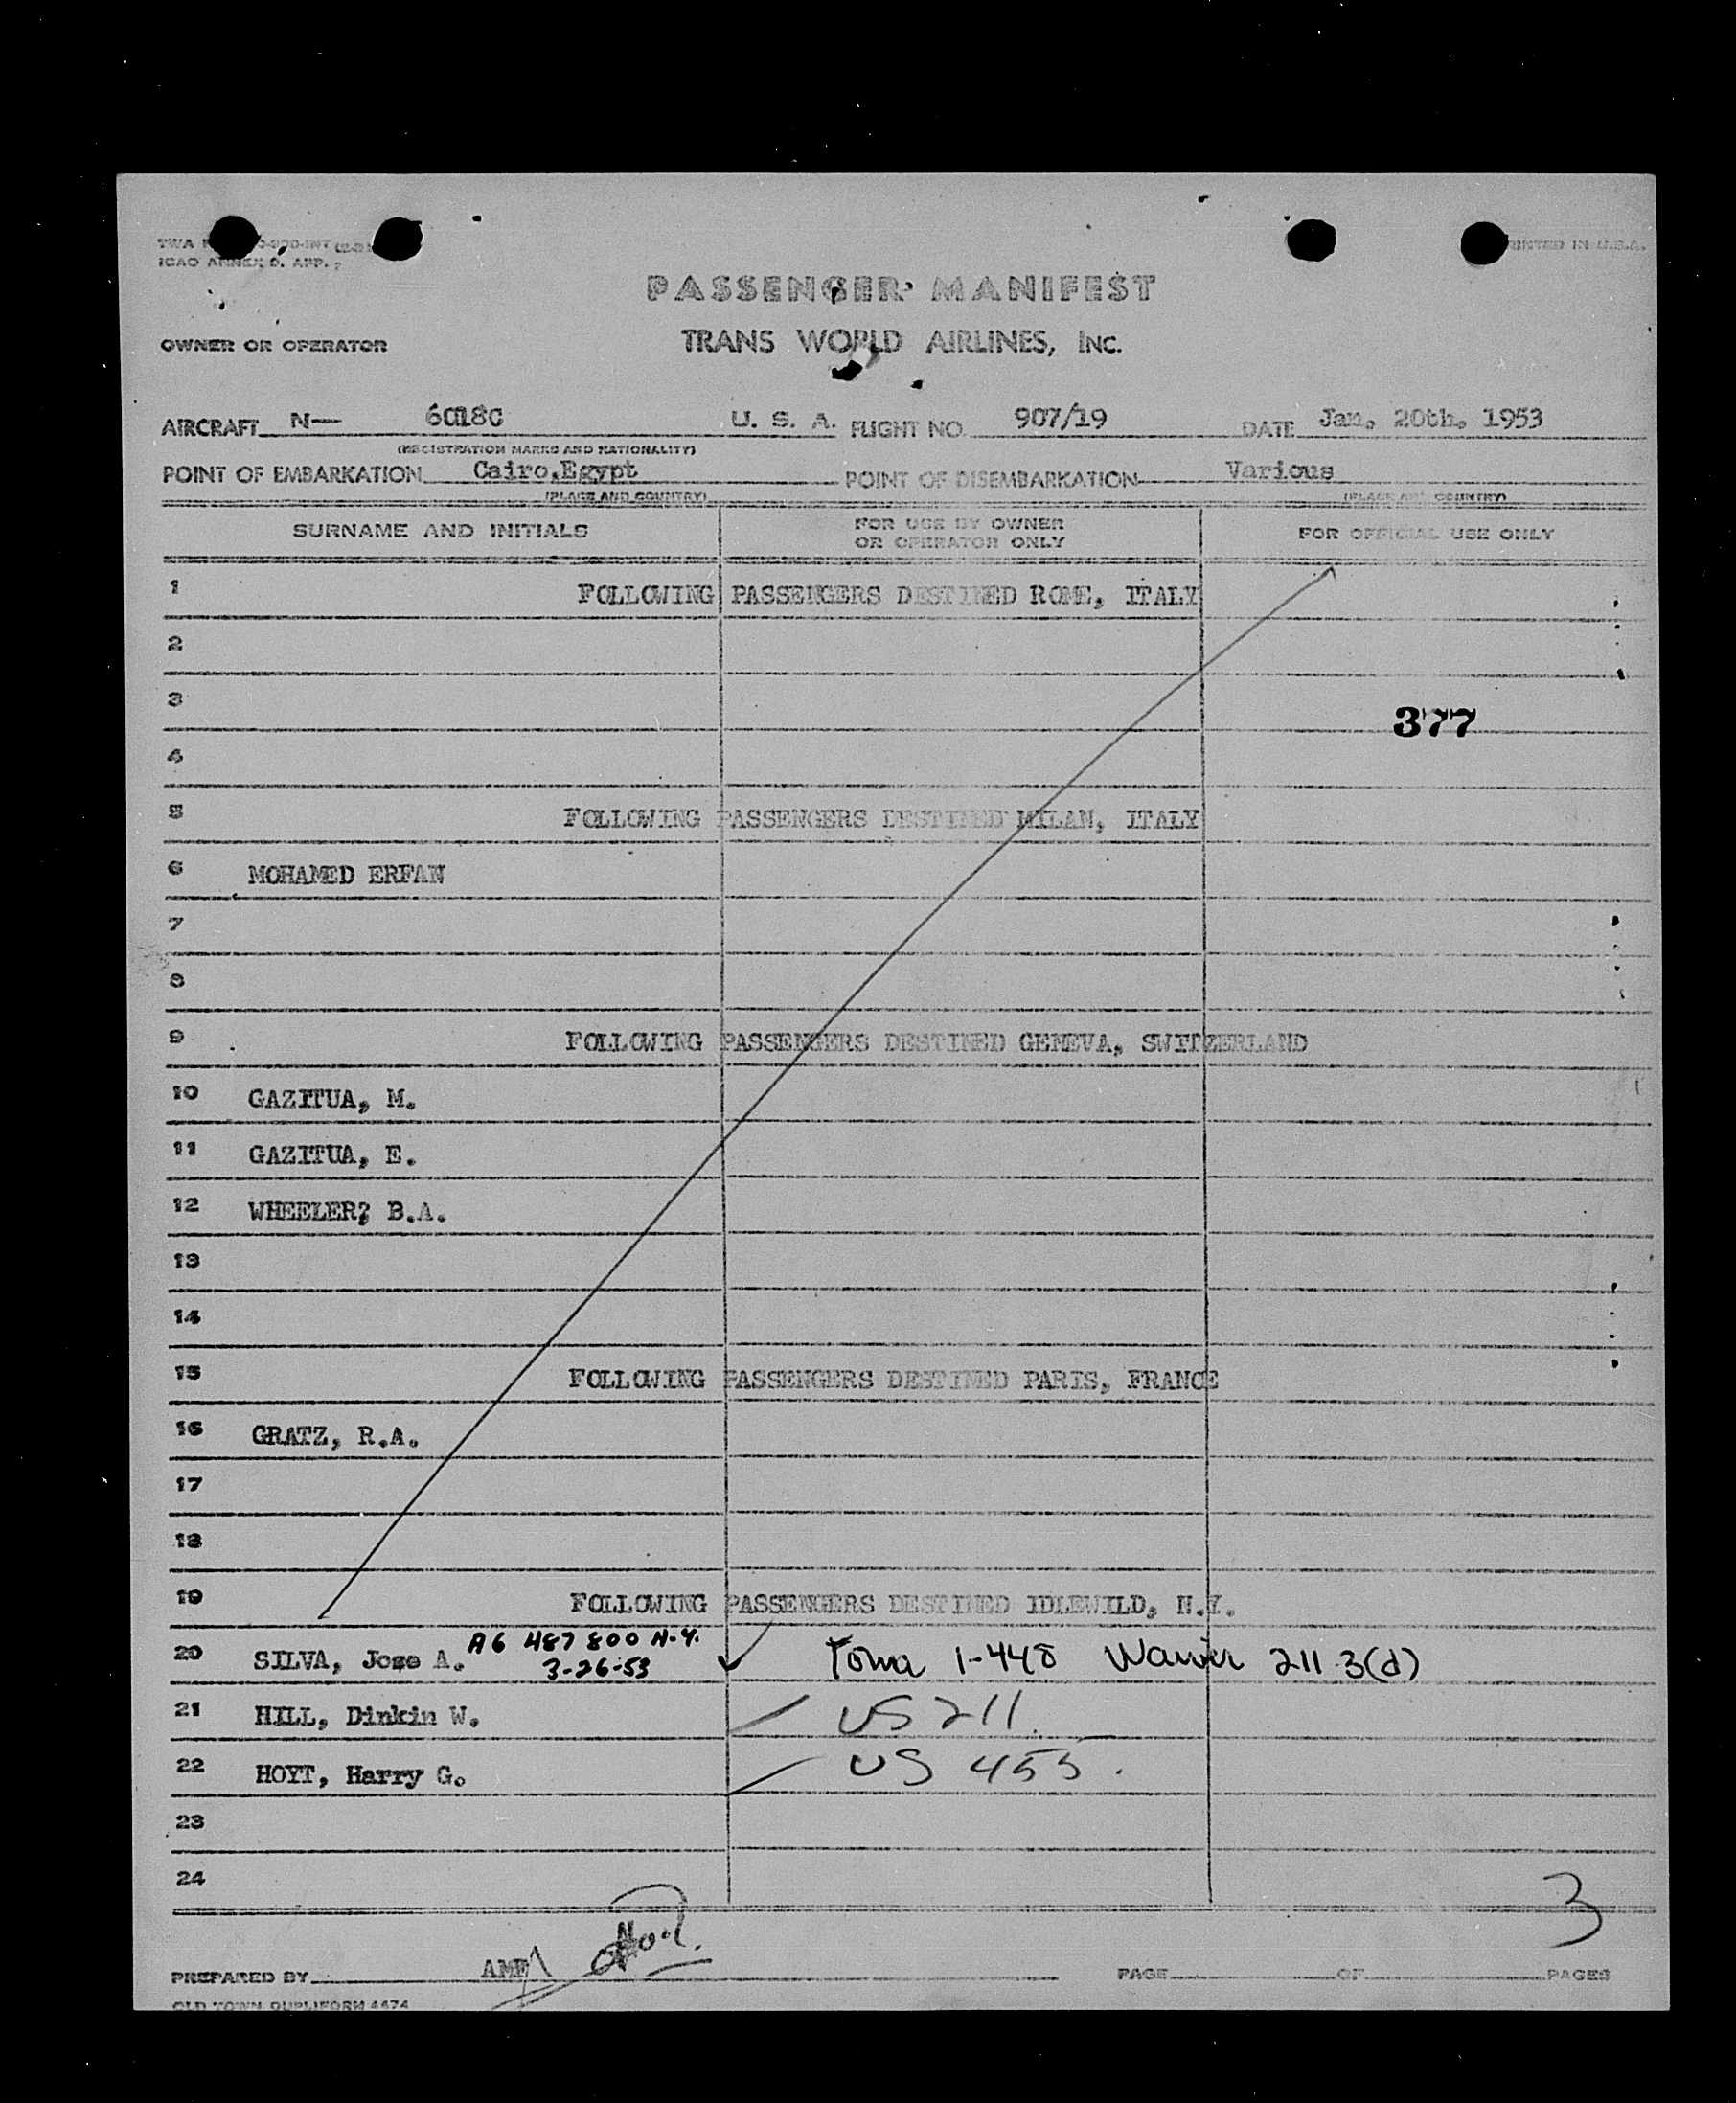 TWA
ICAO ANNEX 9. APP.
PRINTED IN U.S.A.
PASSENGER MANIFEST
OWNER OR OPERATOR
TRANS WORLD AIRLINES, INC.
AIRCRAFT N— 6018C U. S. A. FLIGHT NO. 907/19 DATE Jan. 20th. 1953
(REGISTRATION MARKS AND NATIONALITY)
POINT OF EMBARKATION Cairo,Egypt POINT OF DISEMBARKATION Various
(PLACE AND COUNTRY) (PLACE AND COUNTRY)
SURNAME AND INITIALS FOR USE BY OWNER OR OPERATOR ONLY FOR OFFICIAL USE ONLY
1 FOLLOWING PASSENGERS DESTINED ROME, ITALY
2
3 377
4
5 FOLLOWING PASSENGERS DESTINED MILAN, ITALY
6 MOHAMED ERFAN
7
8
9 FOLLOWING PASSENGERS DESTINED GENEVA, SWITZERLAND
10 GAZITUA, M.
11 GAZITUA, E.
12 WHEELER, B.A.
13
14
15 FOLLOWING PASSENGERS DESTINED PARIS, FRANCE
16 GRATZ, R.A.
17
18
19 FOLLOWING PASSENGERS DESTINED IDLEWILD, N.Y.
20 SILVA, Jose A. A6 487 800 N.Y. 3-26-53 Form 1-448 Waiver 211.3(d)
21 HILL, Dinkin W. US 211.
22 HOYT, Harry G. US 455.
23
24
3
PREPARED BY AME PAGE OF PAGES
OLD TOWN DUPLIFORM 4474